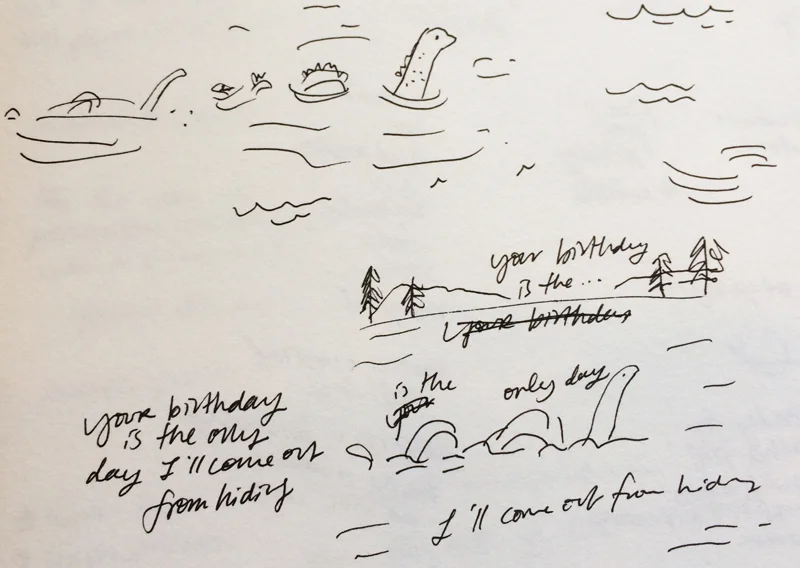 your birthday
is the...
your birthday
is the
your
only day
your birthday
is the only
day I'll come out
from hiding
I'll come out from hiding